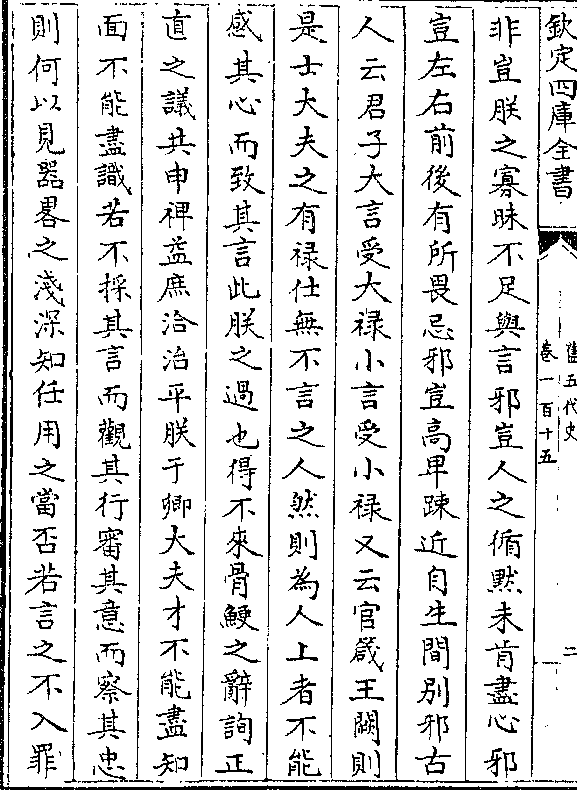 欽定四庫全書
舊五代史
卷一百十五
二
非豈朕之寡昧不足與言邪豈人之循黙未肯盡心邪
豈左右前後有所畏忌邪豈高卑踈近自生間別邪古
人云君子大言受大禄小言受小禄又云官箴王闕則
是士大夫之有禄仕無不言之人然則為人上者不能
感其心而致其言此朕之過也得不來骨鯁之辭詢正
直之議共申禆益庶洽治平朕于卿大夫才不能盡知
面不能盡識若不採其言而觀其行審其意而察其忠
則何以見器畧之淺深知任用之當否若言之不入罪